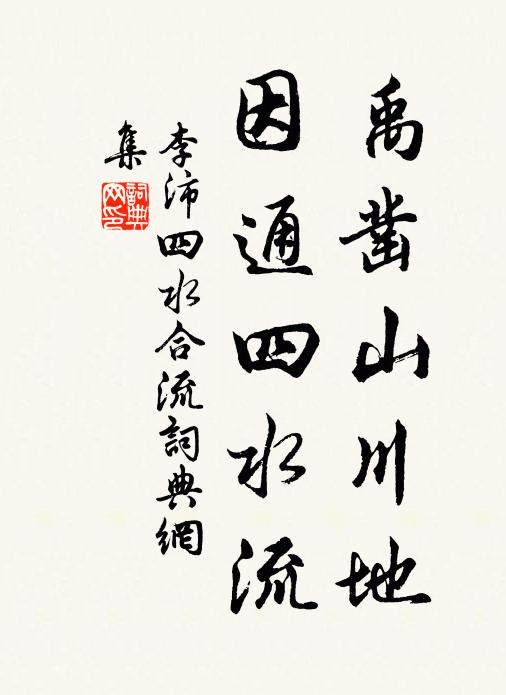 禹鑿山川地
因通四水流
李沛四水合流詞典網
集
詞典
网印